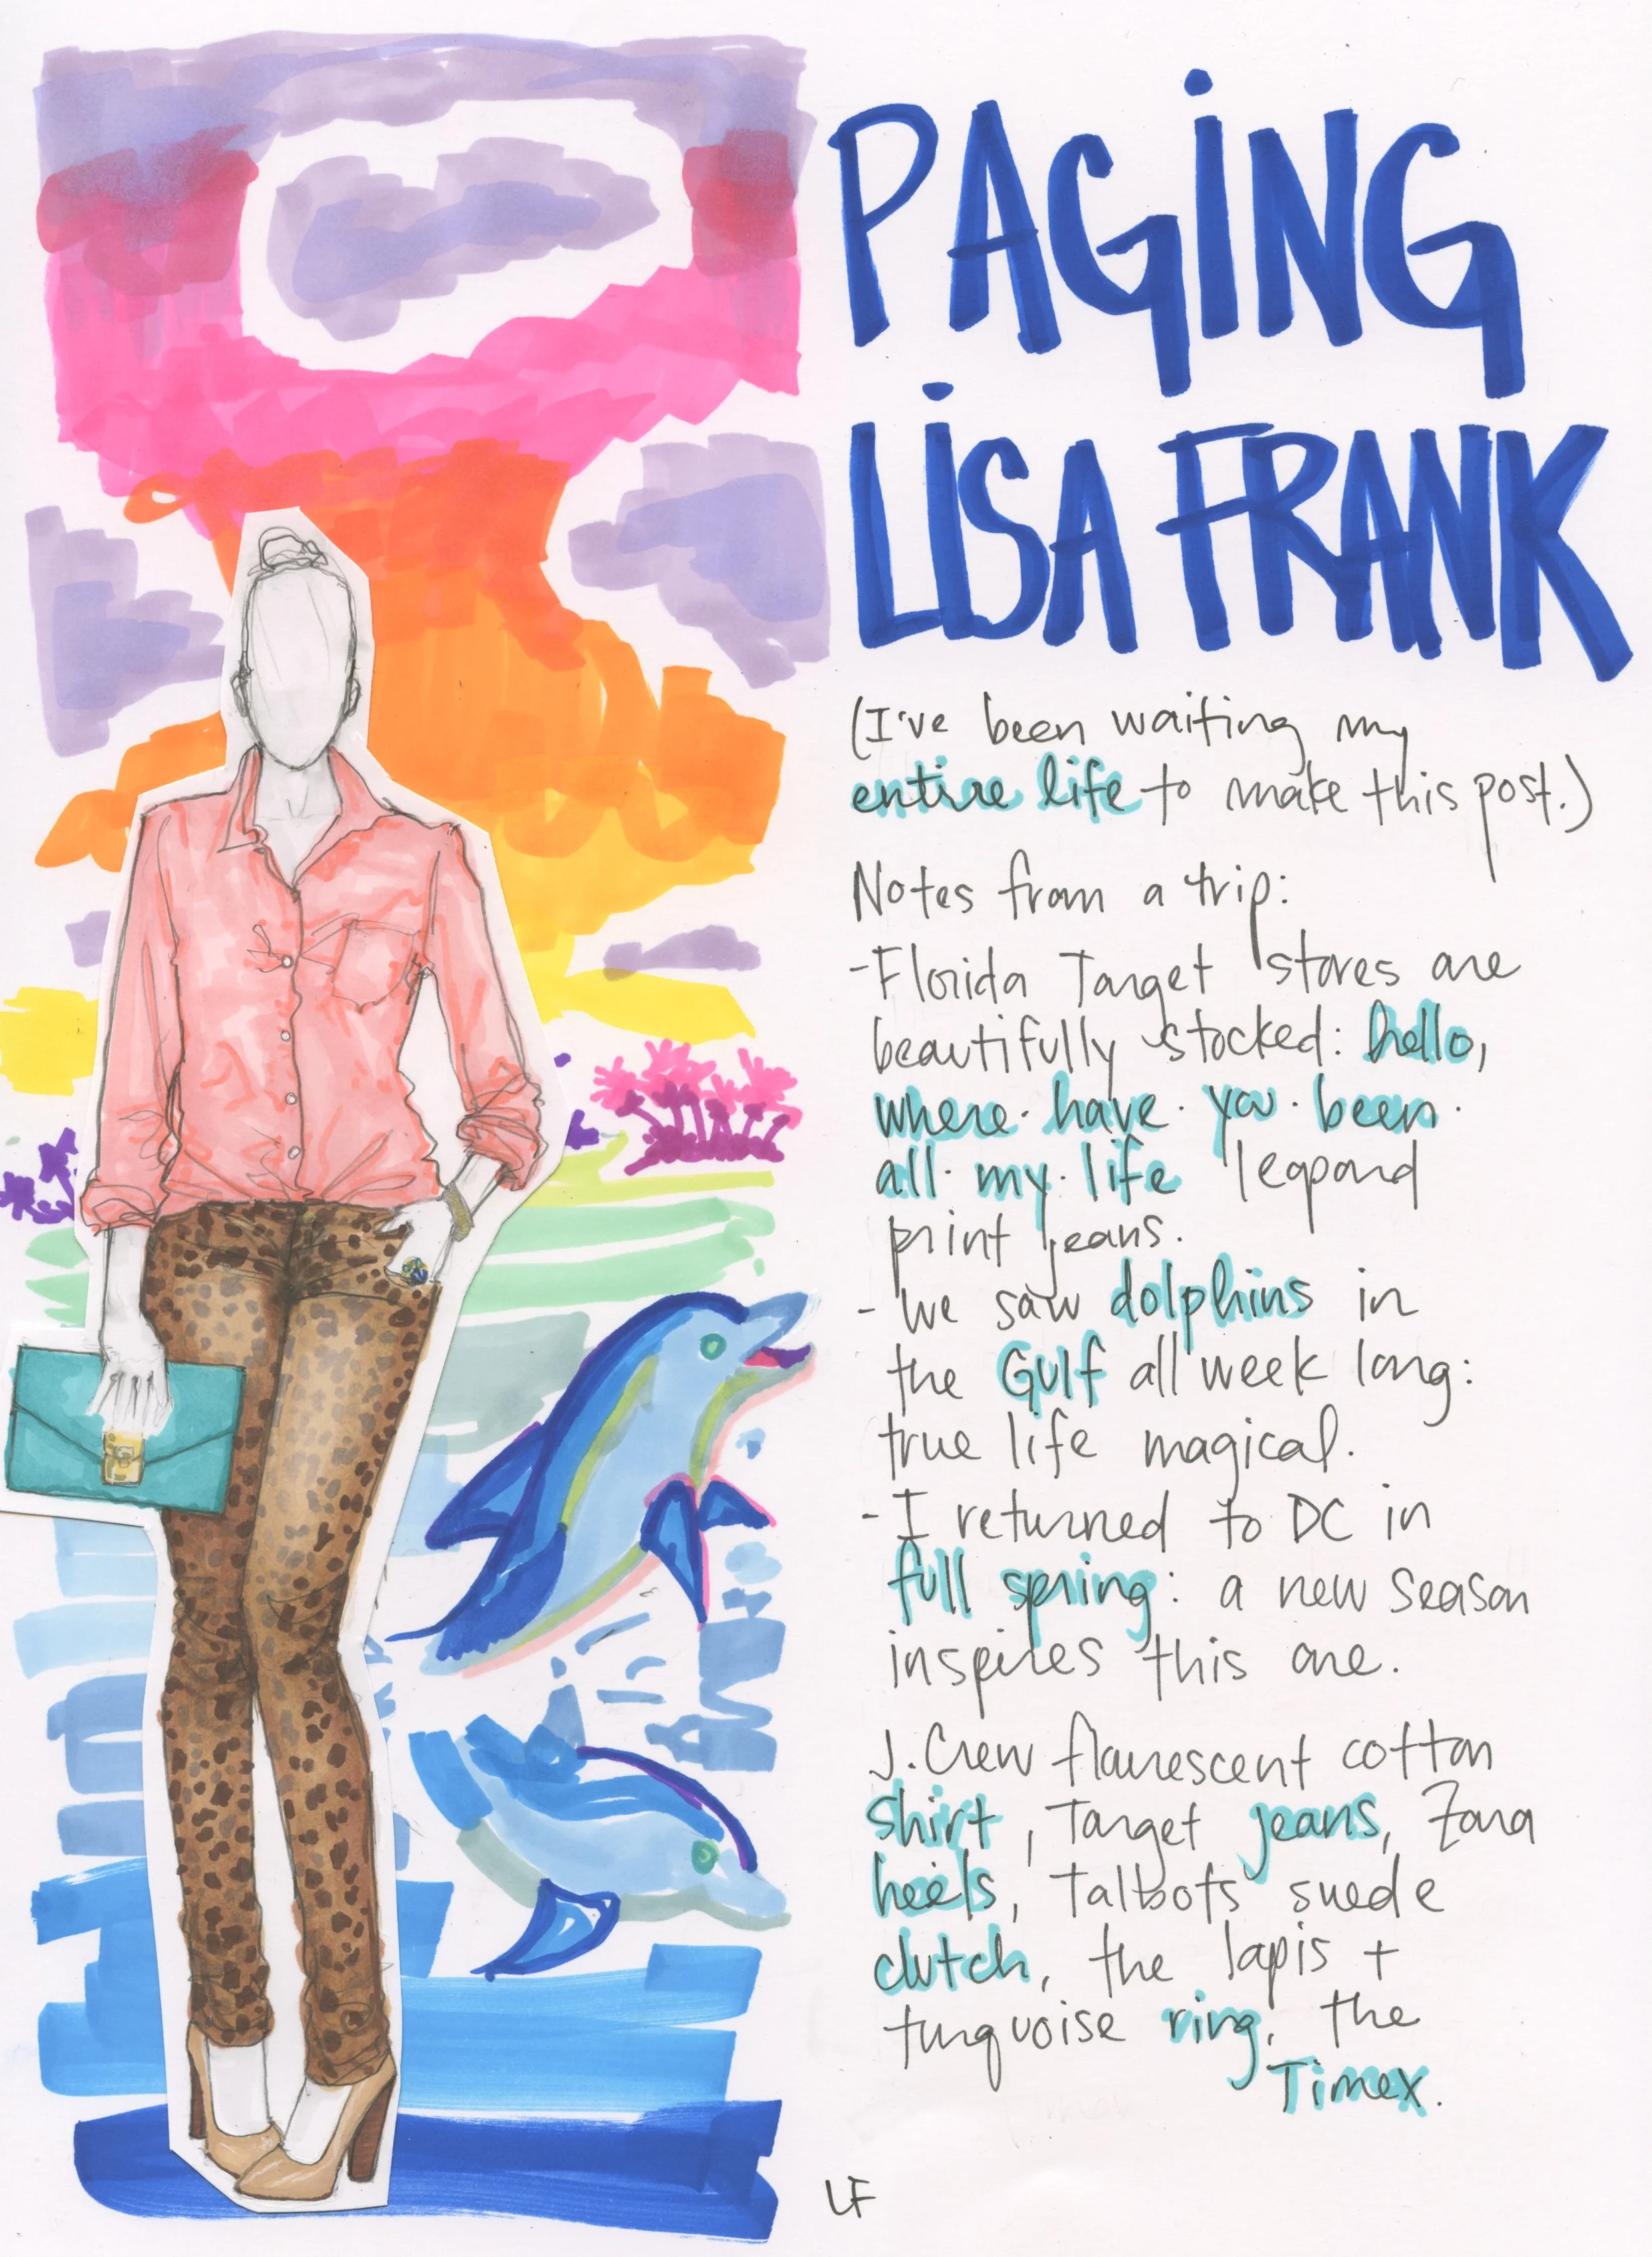 PAGING
LISA FRANK
(I've been waiting my
entire life to make this post.)
Notes from a trip:
-Florida Target stores are
beautifully stocked: hello,
where·have·you·been·
all·my·life leopard
print jeans.
- We saw dolphins in
the Gulf all week long:
true life magical.
- I returned to DC in
full spring: a new season
inspires this one.
J.Crew flourescent cotton
shirt, Target jeans, Zara
heels, Talbots suede
clutch, the lapis +
turquoise ring, the
Timex.
LF